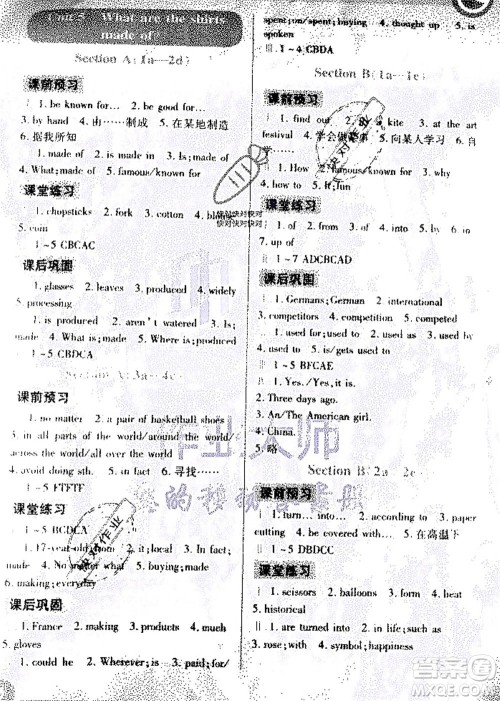 Unit 5 What are the shirts
made of?
Section A(1a—2d)
课前预习
Ⅰ 1. be known for… 2. be used for…
3. by hand 4. 由……制成 5. 在某地制造
6. 据我所知
Ⅱ 1. made of 2. made in 3. Is; made of
4. What; made of 5. famous/known for
课堂练习
Ⅰ 1. chopsticks 2. fork 3. cotton 4.
5. coin
Ⅱ 1～5 CBCAC
课后巩固
Ⅰ 1. glasses 2. leaves 3. produced 4. widely
5. processing
Ⅱ 1. is produced 2. aren't watered 3. Is; grown
4. Was; made 5. Where is; produced
Ⅲ 1～5 CBDCA
Section A(3a—4c)
课前预习
Ⅰ 1. no matter 2. a pair of basketball shoes
3. in all parts of the world/around the world/
all over the world/throughout the world
4. avoid doing sth. 5. 6. 寻找……
Ⅱ 1～5 FTFTF
课堂练习
Ⅰ 1～5 BCDCA
Ⅱ 1. 17-year-old 2. it; is; local
4. No matter what 5. is; made
6. making; everyday
课后巩固
Ⅰ 1. France 2. making 3. products 4. much
5. gloves
Ⅱ 1. could he 2. Wherever; is 3. paid; for/
spent; on/spent; buying 4. thought up 5. is
spoken
Ⅲ 1～4 CBDA
Section B(1a—1e)
课前预习
Ⅰ 1. find out 2. a kite 3. at the art
festival 4. 学会做某事 5. 向某人学习 6. 自
学
Ⅱ 1. How 2. famous/known for
5. to 6. It; fun
课堂练习
Ⅰ 1. of 2. from 3. of 4. in 5. in
7. up of
Ⅱ 1～6 ADBCAD
课后巩固
Ⅰ 1. Germans; German 2. international
3. competitors 4. competition 5. is painted
Ⅱ 1. used by 2. used as 3. used to 4. used for
5. is/gets used to
Ⅲ 1～5 BFCAE
Ⅳ 1. Yes./Yes, it is.
2. Three days ago.
3. An/The American girl.
4. China.
5. 略
Section B(2a—2e)
课前预习
Ⅰ 1. turn… into… 2. according to 3. paper
cutting 4. be covered with… 5. 在高温下
Ⅱ 1～5 DBDCC
课堂练习
Ⅰ 1. scissors 2. balloons 3. form 4. heat
5. historical
Ⅱ 1. are turned into 2. such as
3. rose; with 4. symbol; happiness
快对快对快对快对
快对快对快对快对
快对作业
作业大师
答案圈
MXQE.COM